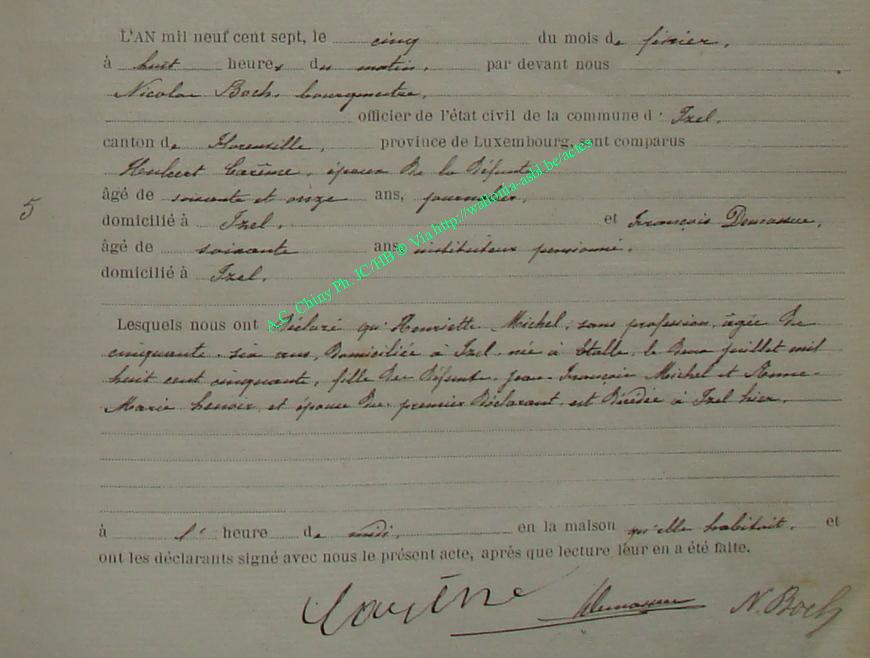 L'AN mil neuf cent sept, le cinq du mois de février,
à huit heures du matin, par devant nous
Nicolas Boch, bourgmestre,
officier de l'état civil de la commune d' Izel,
canton de Florenville, province de Luxembourg, sont comparus
Hubert Carême, époux de la défunte
âgé de soixante et onze ans, journalier,
domicilié à Izel, et François Demasure,
5
âgé de soixante ans, instituteur pensionné,
domicilié à Izel,
A.C. Chiny Ph. JC/HB © Via http://wallonia-asbl.be/actes
Lesquels nous ont déclaré qu'Henriette Michel, sans profession, âgée de
cinquante-six ans, domiciliée à Izel, née à Etalle, le deux juillet mil
huit cent cinquante, fille de défunts Jean-François Michel et Anne-
Marie Lenoir, et épouse du premier déclarant, est décédée à Izel hier,
à l' heure de midi, en la maison qu'elle habitait, et
ont les déclarants signé avec nous le présent acte, après que lecture leur en a été faite.
Carême Demasure N. Boch